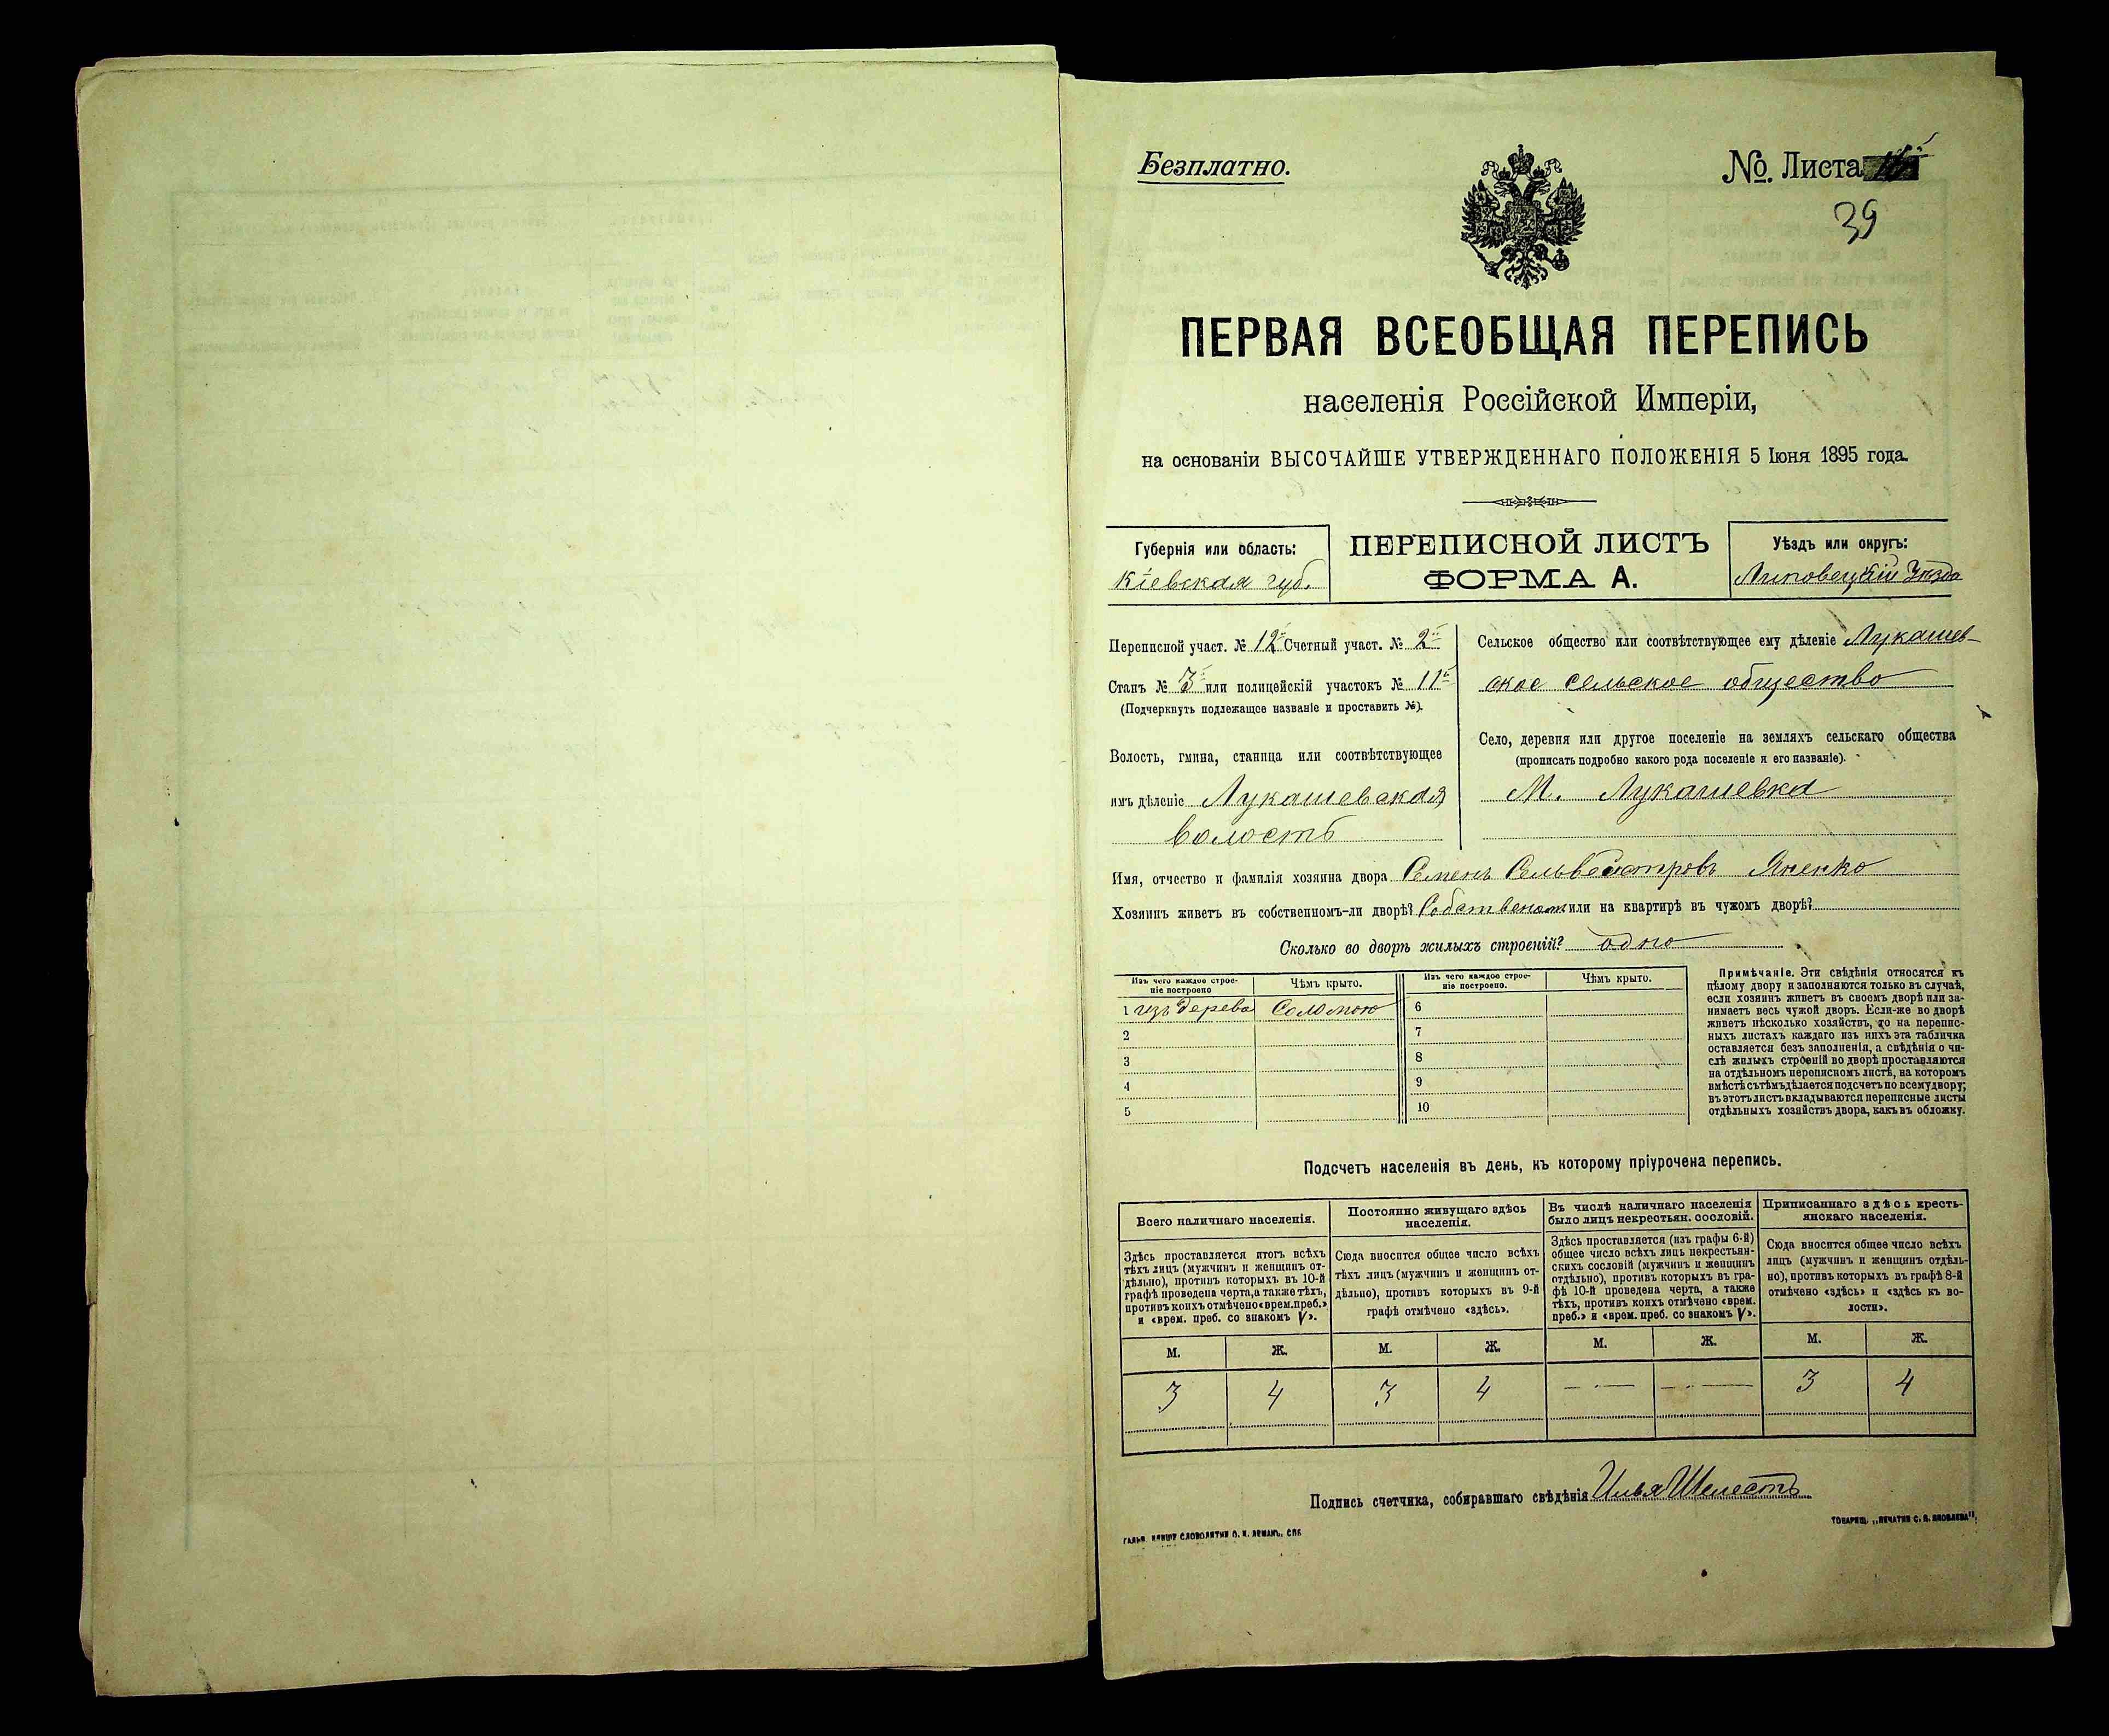 Безплатно.
№. Листа
39
ПЕРВАЯ ВСЕОБЩАЯ ПЕРЕПИСЬ
населенія Россійской Имперіи,
на основаніи ВЫСОЧАЙШЕ УТВЕРЖДЕННАГО ПОЛОЖЕНІЯ 5 Іюня 1895 года.
Губернія или область:
Кіевская губ.
ПЕРЕПИСНОЙ ЛИСТЪ
ФОРМА А.
Уѣздъ или округъ:
Липовецкій Уѣздъ
Переписной участ. № 12й Счетный участ. № 2й
Станъ № 3й или полицейскій участокъ № 11й
(Подчеркнуть подлежащее названіе и проставить №).
Волость, гмина, станица или соотвѣтствующее
имъ дѣленіе Лукашевская
волость
Сельское общество или соотвѣтствующее ему дѣленіе Лукашев-
ское сельское общество
Село, деревня или другое поселеніе на земляхъ сельскаго общества
(прописать подробно какого рода поселеніе и его названіе).
М. Лукашевка
Имя, отчество и фамилія хозяина двора Семенъ Сельвестровъ Яненко
Хозяинъ живетъ въ собственномъ-ли дворѣ? Собственом или на квартирѣ въ чужомъ дворѣ?
Сколько во дворѣ жилыхъ строеній? одно
Изъ чего каждое строе-
ніе построено
Чѣмъ крыто.
1 изъ дерева Соломою
2
3
4
5
Изъ чего каждое строе-
ніе построено.
Чѣмъ крыто.
6
7
8
9
10
Примѣчаніе. Эти свѣдѣнія относятся къ
цѣлому двору и заполняются только въ случаѣ,
если хозяинъ живетъ въ своемъ дворѣ или за-
нимаетъ весь чужой дворъ. Если-же во дворѣ
живетъ нѣсколько хозяйствъ, то на перепис-
ныхъ листахъ каждаго изъ нихъ эта табличка
оставляется безъ заполненія, а свѣдѣнія о чи-
слѣ жилыхъ строеній во дворѣ проставляются
на отдѣльномъ переписномъ листѣ, на которомъ
вмѣстѣ съ тѣмъ дѣлается подсчетъ по всему двору;
въ этотъ листъ вкладываются переписные листы
отдѣльныхъ хозяйствъ двора, какъ въ обложку.
Подсчетъ населенія въ день, къ которому пріурочена перепись.
Всего наличнаго населенія.
Здѣсь проставляется итогъ всѣхъ
тѣхъ лицъ (мужчинъ и женщинъ от-
дѣльно), противъ которыхъ въ 10-й
графѣ проведена черта, а также тѣхъ,
противъ коихъ отмѣчено «врем. преб.»
и «врем. преб. со знакомъ V».
Постоянно живущаго здѣсь
населенія.
Сюда вносится общее число всѣхъ
тѣхъ лицъ (мужчинъ и женщинъ от-
дѣльно), противъ которыхъ въ 9-й
графѣ отмѣчено «здѣсь».
Въ числѣ наличнаго населенія
было лицъ некрестьян. сословій.
Здѣсь проставляется (изъ графы 6-й)
общее число всѣхъ лицъ некрестьян-
скихъ сословій (мужчинъ и женщинъ
отдѣльно), противъ которыхъ въ гра-
фѣ 10-й проведена черта, а также
тѣхъ, противъ коихъ отмѣчено «врем.
преб.» и «врем. преб. со знакомъ V».
Приписаннаго здѣсь кресть-
янскаго населенія.
Сюда вносится общее число всѣхъ
лицъ (мужчинъ и женщинъ отдѣль-
но), противъ которыхъ въ графѣ 8-й
отмѣчено «здѣсь» и «здѣсь къ во-
лости».
М. Ж. М. Ж. М. Ж. М. Ж.
3 4 3 4 — — 3 4
Подпись счетчика, собиравшаго свѣдѣнія Илья Шелестъ
ГАЛЬВ. КЛИШЕ СЛОВОЛИТНИ О. И. ЛЕМАНЪ, СПБ.
ТОВАРИЩ. „ПЕЧАТНИ С. П. ЯКОВЛЕВА".